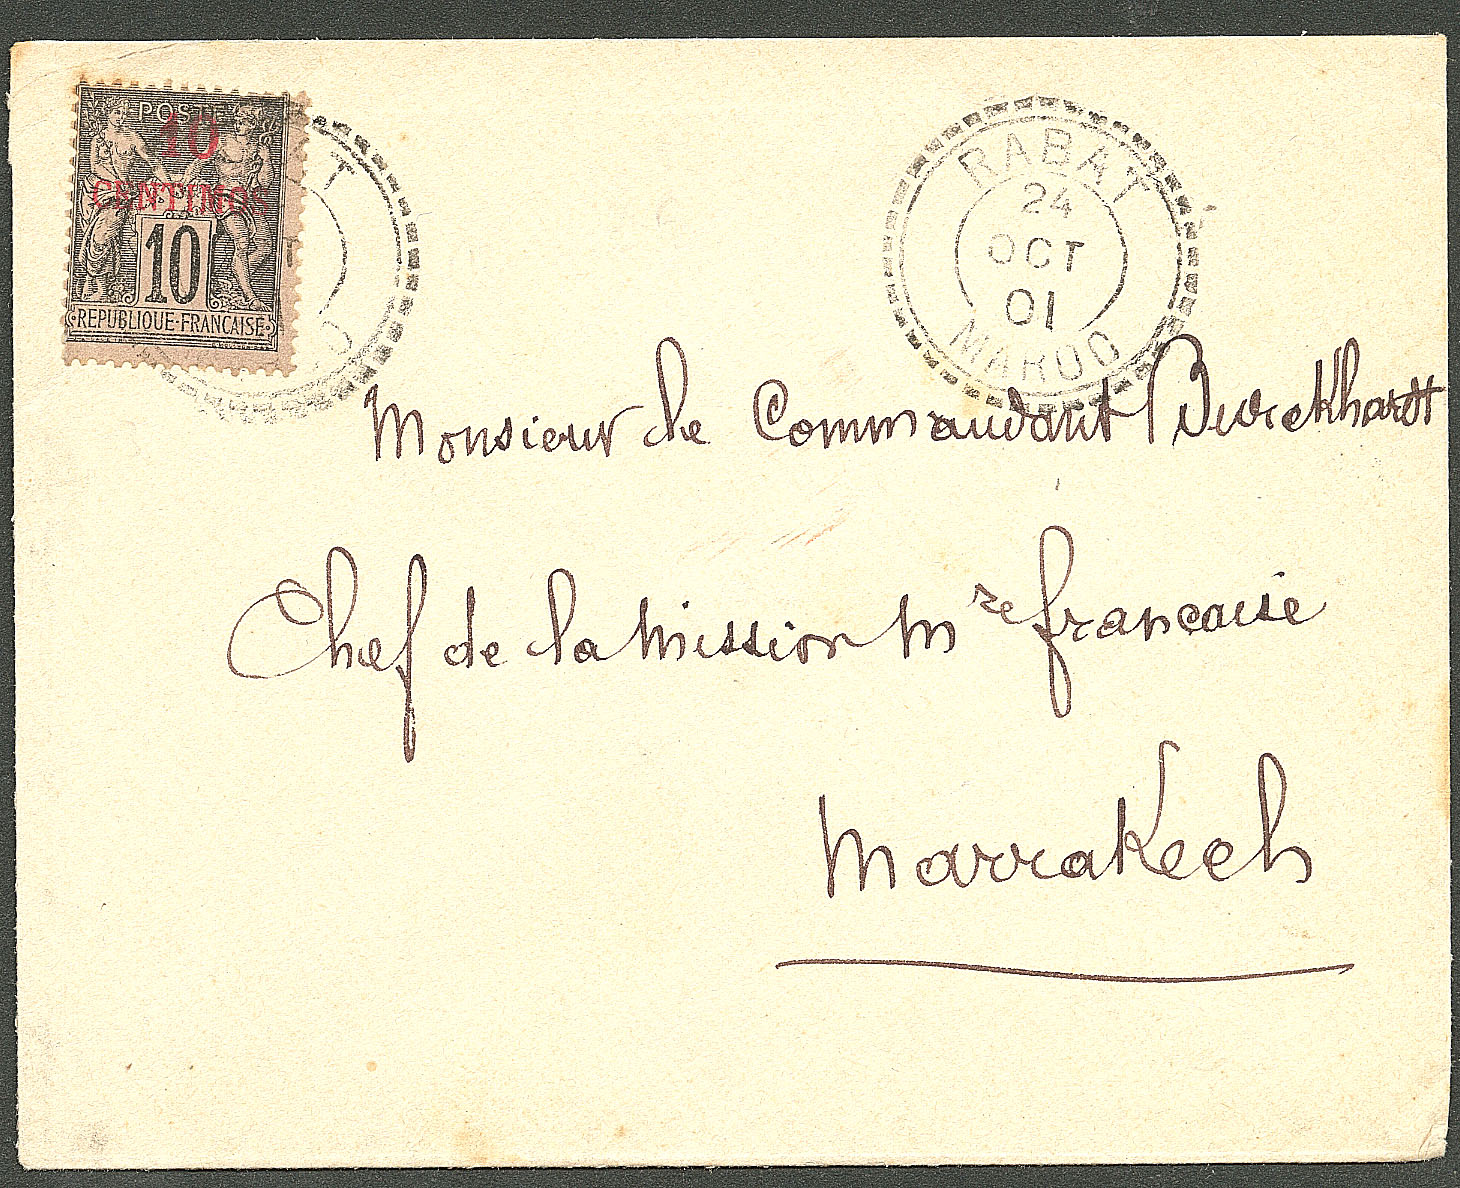 POSTE
10
CENTIMOS
10
REPUBLIQUE·FRANCAISE
RABAT
24
OCT
01
MAROC
Monsieur le Commandant Burckhardt
Chef de la Mission Mre française
Marrakech